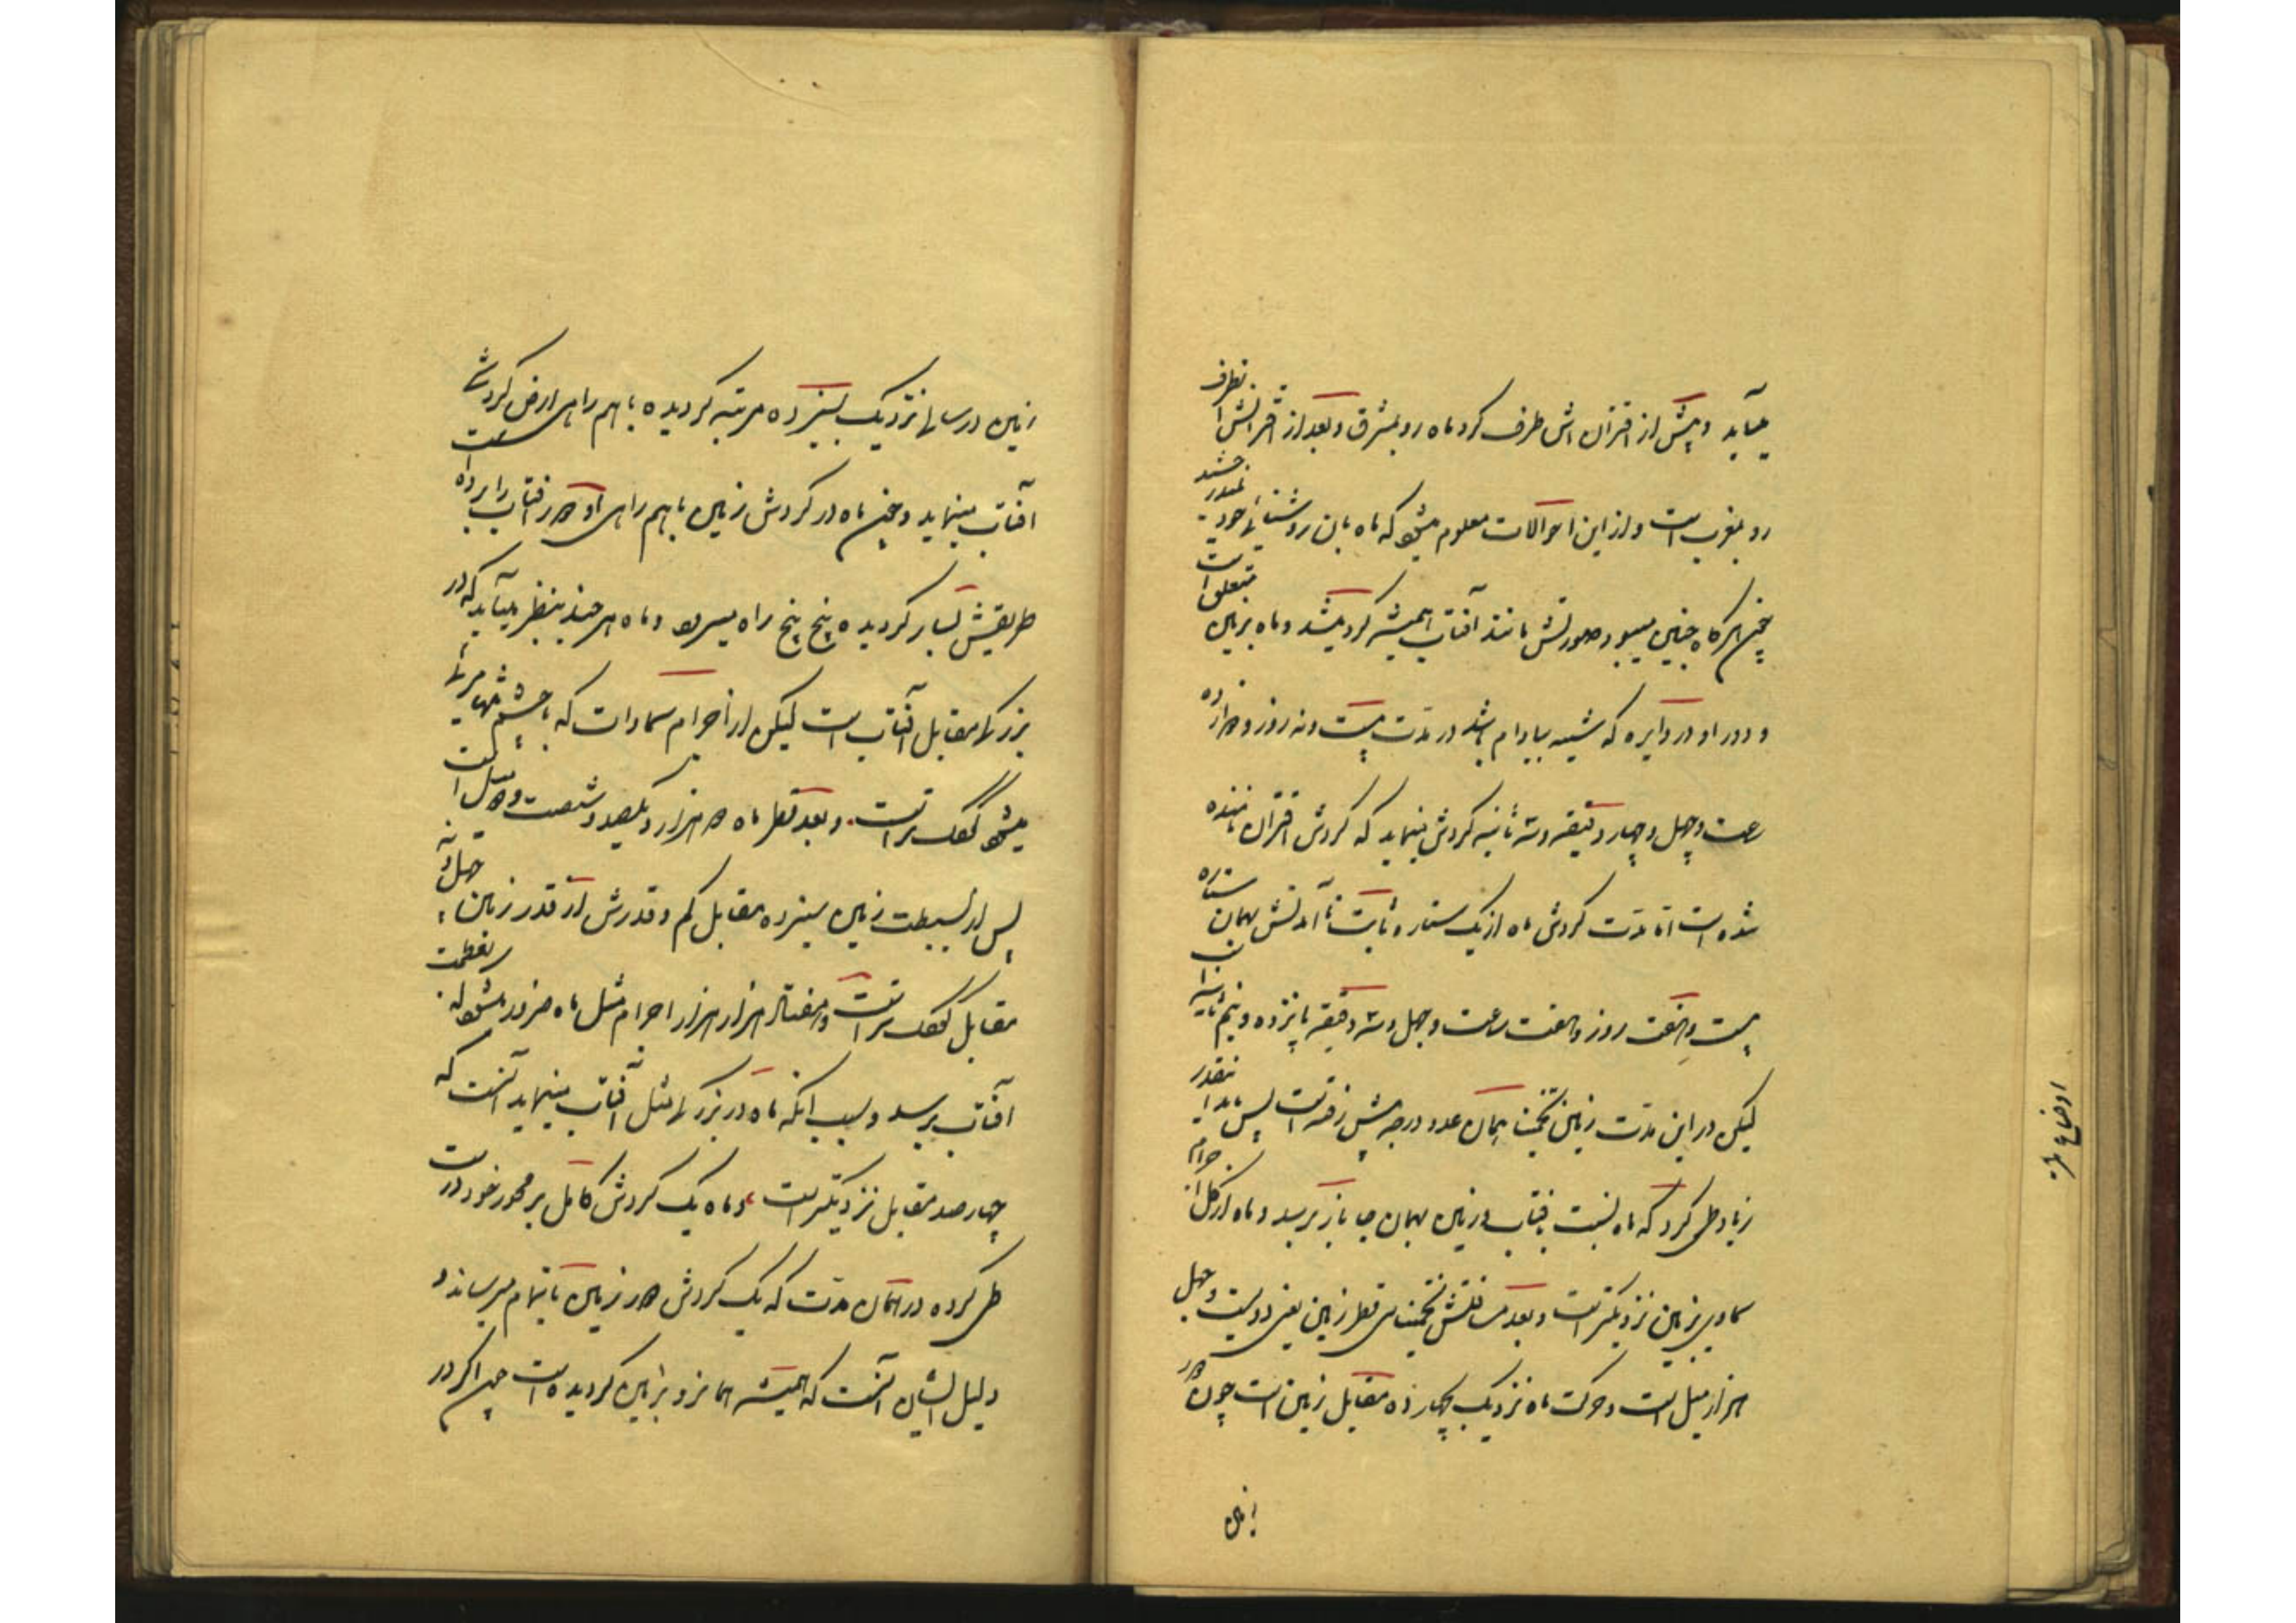 میآید و پیش از اقترانش طرف گرد ماه رو بمشرق و بعد از اقترانش انطرف
رو بمغرب است و از این احوالات معلوم میشود که ماه بان روشنائی خود نمیدرخشد
چون هرگاه چنین میبود صورتش مانند آفتاب همیشه گرد میشد و ماه بزمین متعلق است
و دور او در دایره که شبیه ببادام باشد در مدّت بیست و نه روز و دوازده
ساعت و چهل و چهار دقیقه و سه ثانیه گردش مینماید که گردش اقتران نامیده
شده است امّا مدّت گردش ماه از یک ستاره ثابت تا آمدنش بهمان ستاره
بیست و هفت روز و هفت ساعت و چهل و سه دقیقه پانزده و نیم ثانیه است
لیکن در این مدّت زمین تخمیناً همان عدد درجه پیش رفته است پس ماه اینقدر
زیاد طی کرد که ماه نسبت بافتاب و زمین بهمان جا باز برسد و ماه از کل اجرام
سماوی بزمین نزدیکتر است و بعد مسافتش تخمیناً سی قطر زمین یعنی دویست و چهل
هزار میل است و حرکت ماه نزدیک بچهارده مقابل زمین است چون در
زمین
اوضاع
زمین در سالی نزدیک بسیزده مرتبه گردیده باهم راهی ارض گردش
آفتاب مینماید و چون ماه در گردش زمین باهم راهی او دور آفتاب را برده است
طریقش بسیار گردیده پیچ پیچ راه میرود و ماه هر چند بنظر میآید که در
بزرگی مقابل آفتاب است لیکن از اجرام سماوات که باچشم تنها مرئی
میشود کوچکتر است و بعد قطر ماه دو هزار و یکصد و شصت و دو میل است
پس از بسیطت زمین سیزده مقابل کم و قدرش از قدر زمین چهل و نه
مقابل کوچکتر است و هفتاد هزار هزار اجرام مثل ماه ضرور میشود که بعظمت
آفتاب برسد و سبب انکه ماه در بزرگی مثل آفتاب مینماید آنست که
چهارصد مقابل نزدیکتر است و ماه یک گردش کامل بر محور خود درست
طی کرده در همان مدّت که یک گردش دور زمین باتمام میرساند و
دلیل ایشان آنست که همیشه همانرو بزمین گردیده است چون اگر در